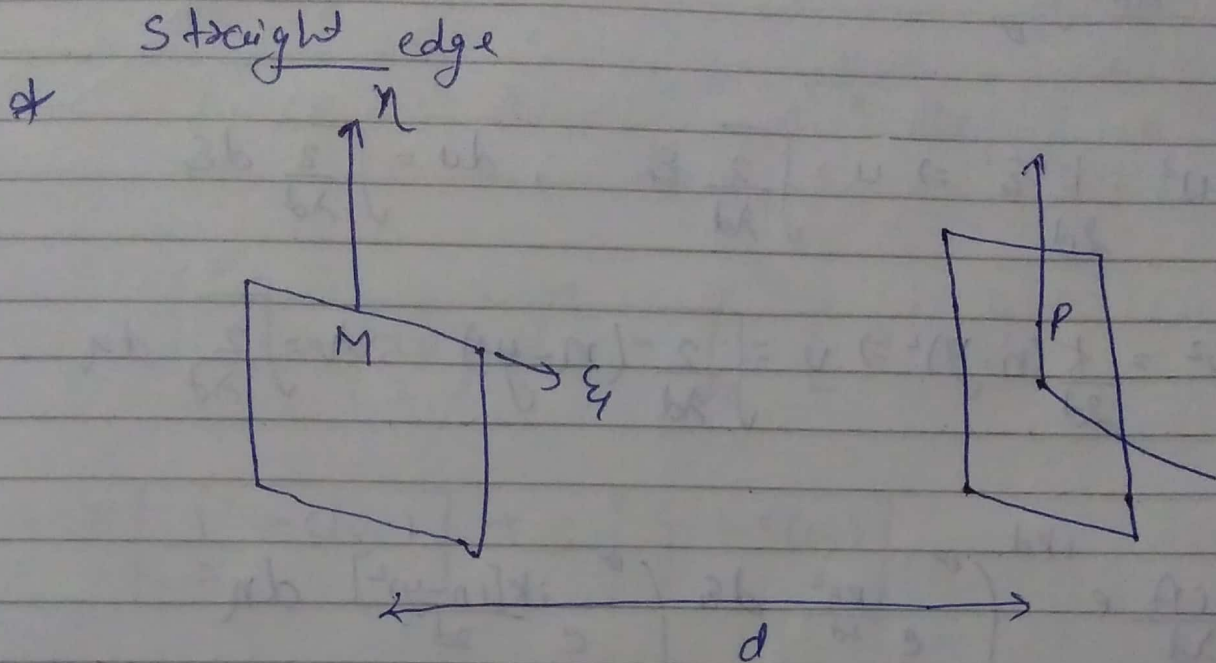 Straight edge
η
M
ξ
P
d